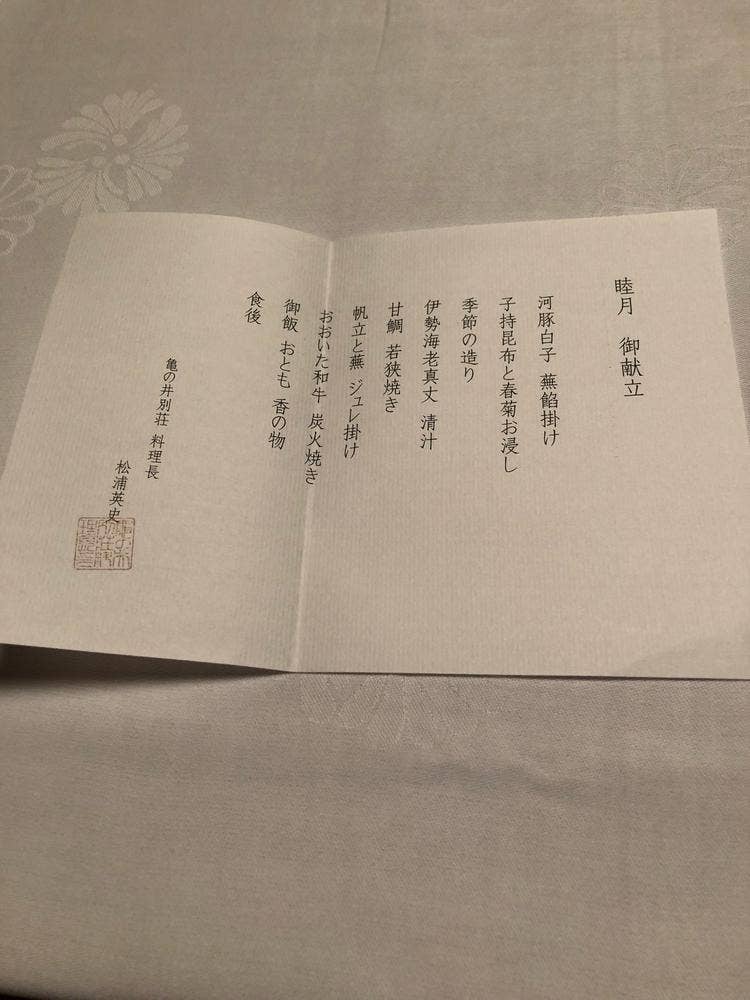 睦月 御献立
河豚白子 蕪餡掛け
子持昆布と春菊お浸し
季節の造り
伊勢海老真丈 清汁
甘鯛 若狭焼き
帆立と蕪 ジュレ掛け
おおいた和牛 炭火焼き
御飯 おとも 香の物
食後
亀の井別荘 料理長
松浦英史